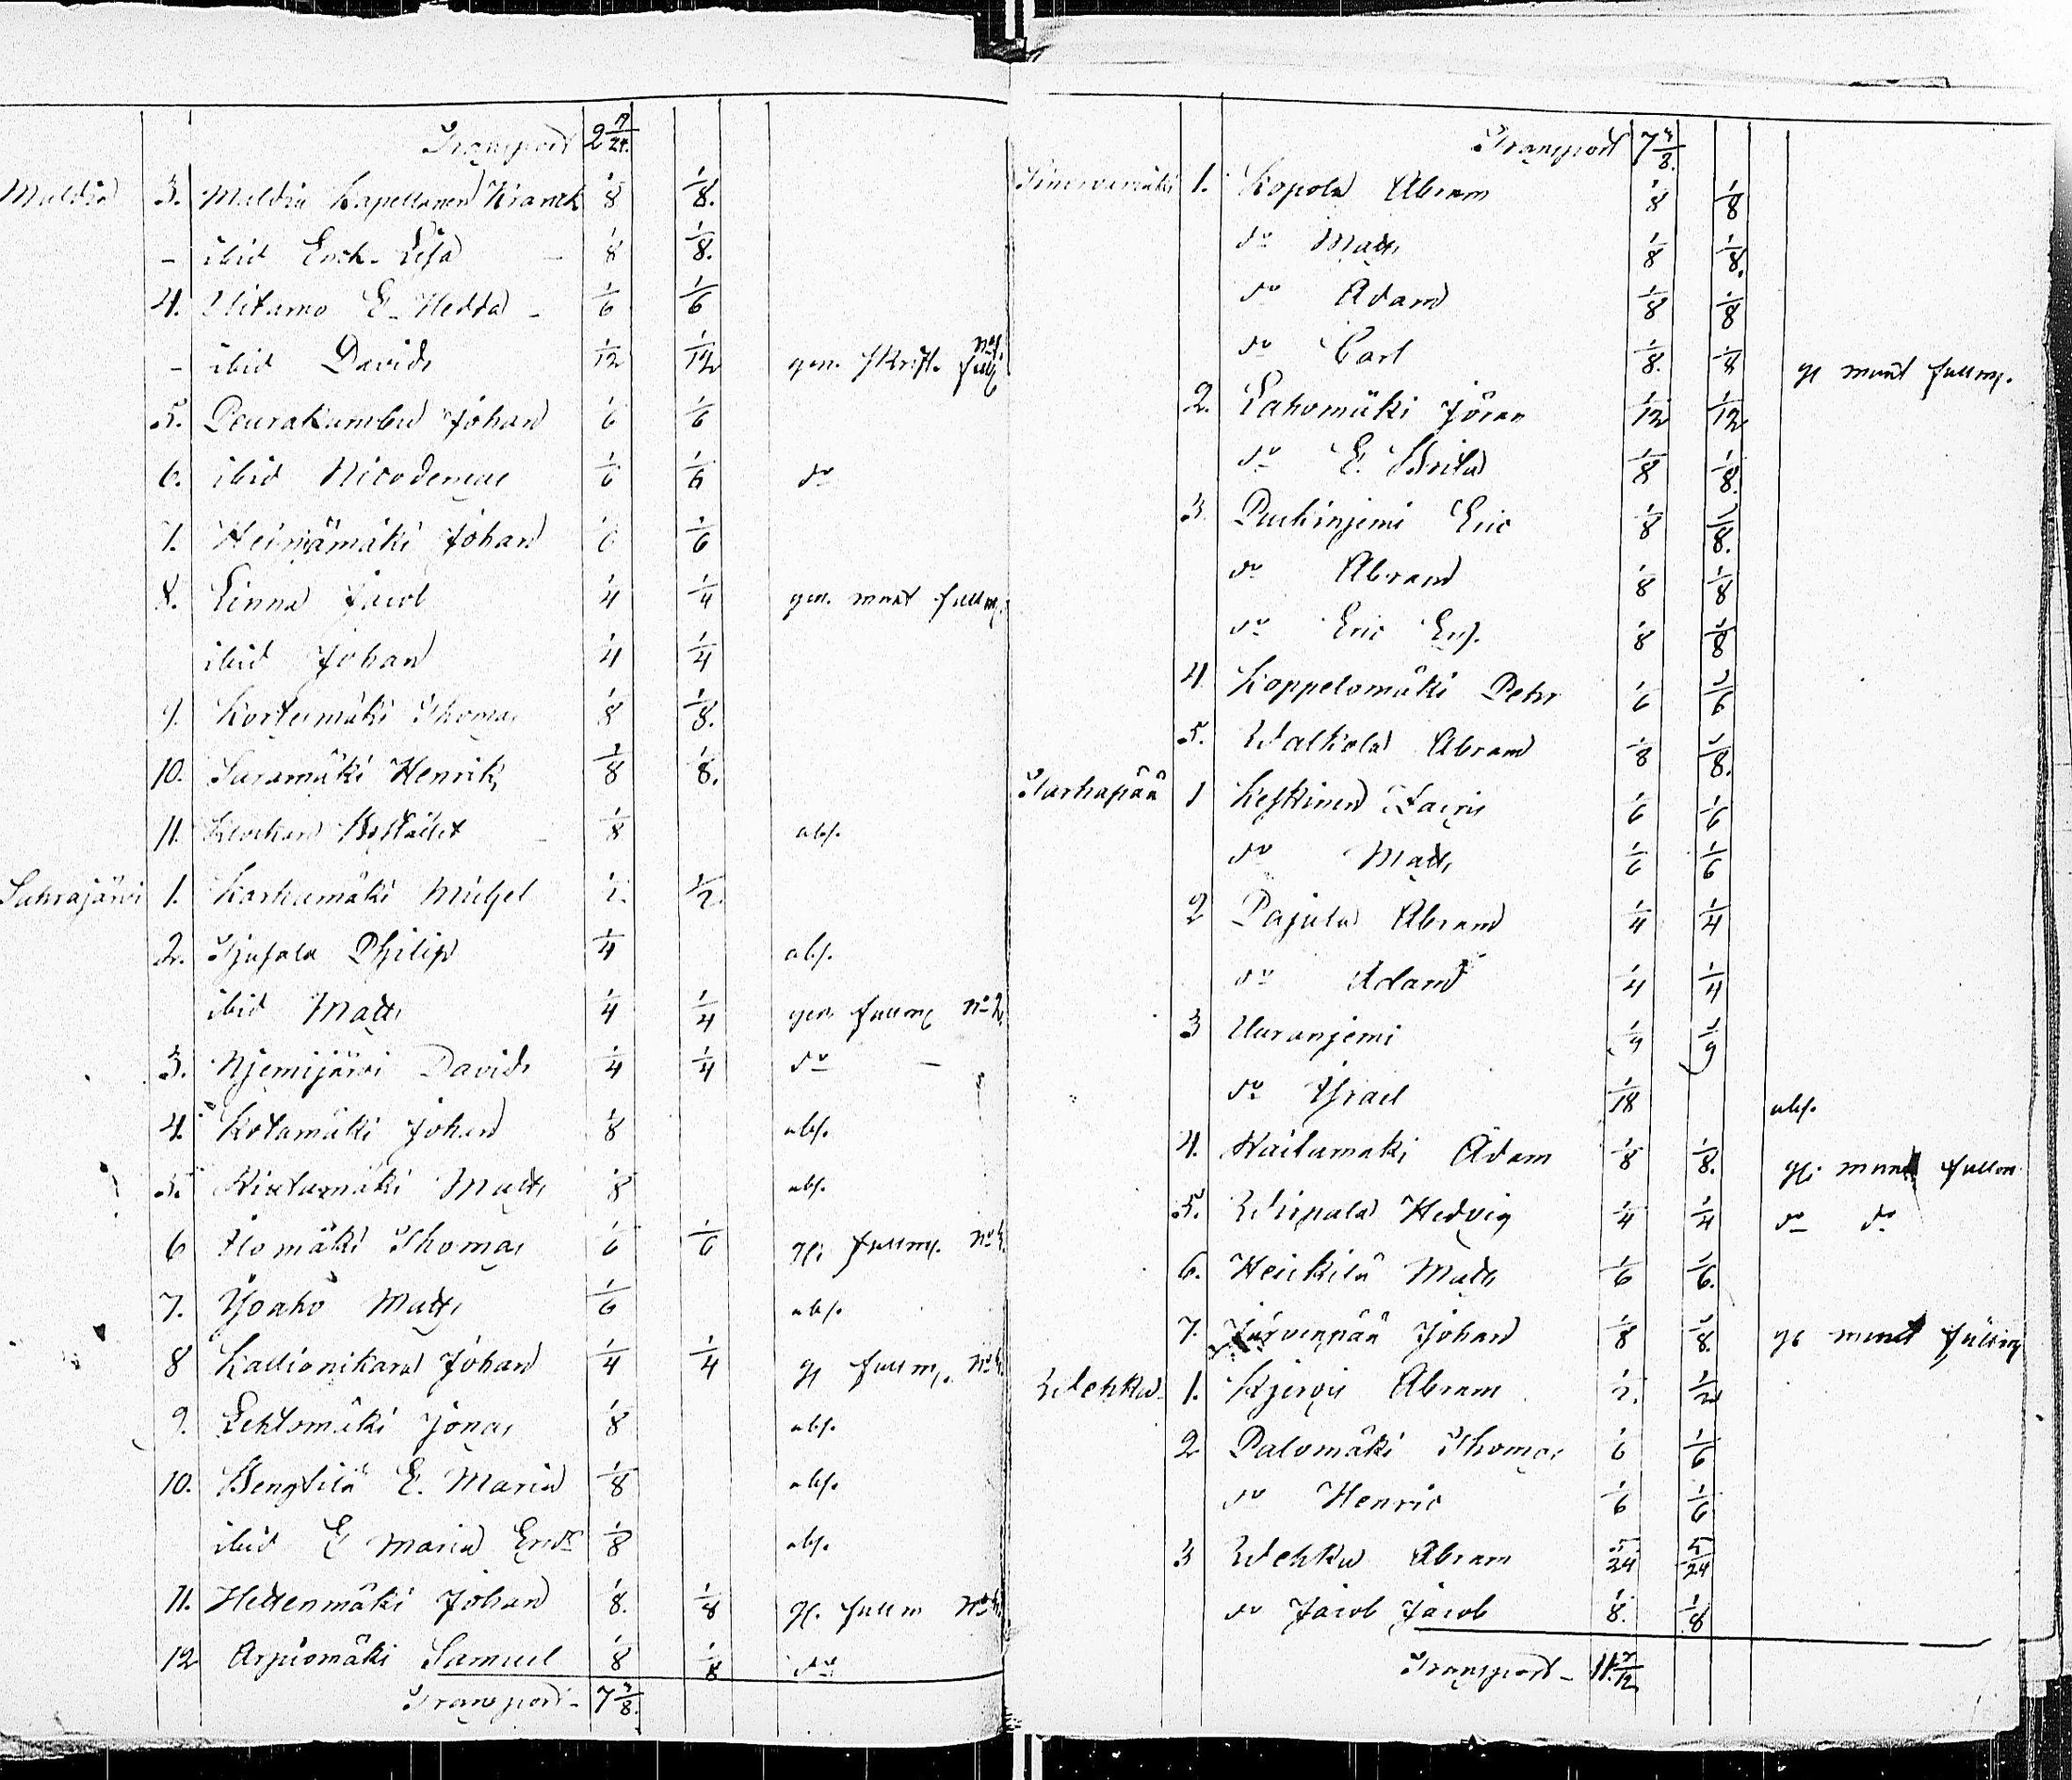 Transport 2 7/24.
Muldia 3. Muldia Kapellanen Kranck 1/8 1/8.
- ibid Enck. Lisa - 1/8 1/8.
4. Uitamo E. Hedda - 1/6 1/6
- ibid Davids 1/12 1/12 gen. skrift. fullm
5. Peurakumbu Johan 1/6 1/6
6. ibid Nicodemus 1/6 1/6 do
7. Heinjämäki Johan 1/6 1/6
8. Linna Jacob 1/4 1/4 gen. munt fullm.
ibid Johan 1/4 1/4
9. Kortesmäki Thomas 1/8 1/8.
10. Suramäki Henrik 1/8 1/8.
11. Klockars Bostället - 1/8 abs.
Sahrajärvi 1. Karhumäki Michel 1/2. 1/2
2. Philip 1/4 abs.
ibid Matts 1/4 1/4 gen. fullm No 2
3. Njemijärvi Davids 1/4 1/4 do -
4. Kotamäki Johan 1/8 abs.
5. Matts 1/8 abs.
6 Ilomäki Thomas 1/6 1/6 gs. fullm. No
7. Yoaho Matts 1/6 abs.
8 Kallionikara Johan 1/4 1/4 gs fullm. No
9. Lehtomäki Jonas 1/8 abs.
10. Bengtilä E. Maria 1/8 abs.
ibid E Maria Ersdr 1/8 abs.
11. Hettenmäki Johan 1/8. 1/8 gs. fullm No
12 Arpiomäki Samuel 1/8 1/8 do
Transport - 7 3/8.
Transport 7 3/8.
Kinervamäki 1. Kopola Abram 1/8 1/8
do Matts 1/8 1/8.
do Adam 1/8 1/8
do Carl 1/8. 1/8 gs munt fullm.
2. Lahomäki Jöran 1/12 1/12
do E. Brita 1/8 1/8.
3. Puckinjemi Eric 1/8 1/8.
do Abram 1/8 1/8
do Eric Ers. 1/8 1/8
4. Koppelomäki Petr 1/6 1/6
5. Walkola Abram 1/8 1/8.
Tarhapää 1 Keskinen 1/6 1/6
do Matts 1/6 1/6
2 Pajula Abram 1/4 1/4
do Adam 1/4 1/4
3 Uuranjemi 1/9 1/9
do Israel 1/18 abs.
4. Raitamaki Adam 1/8 1/8. gs. munt fullm
5. Wirpala Hedvig 1/4 1/4 do do
6. Heickilä Matts 1/6 1/6.
7. Järvenpää Johan 1/8 1/8. gs munt fullm
Wehku 1. Kjervis Abram 1/2. 1/2
2 Palomäki Thomas 1/6 1/6
do Henric 1/6 1/6
3 Wehku Abram 5/24 5/24
do Jacob Jacob 1/8. 1/8
Transport - 11 7/12